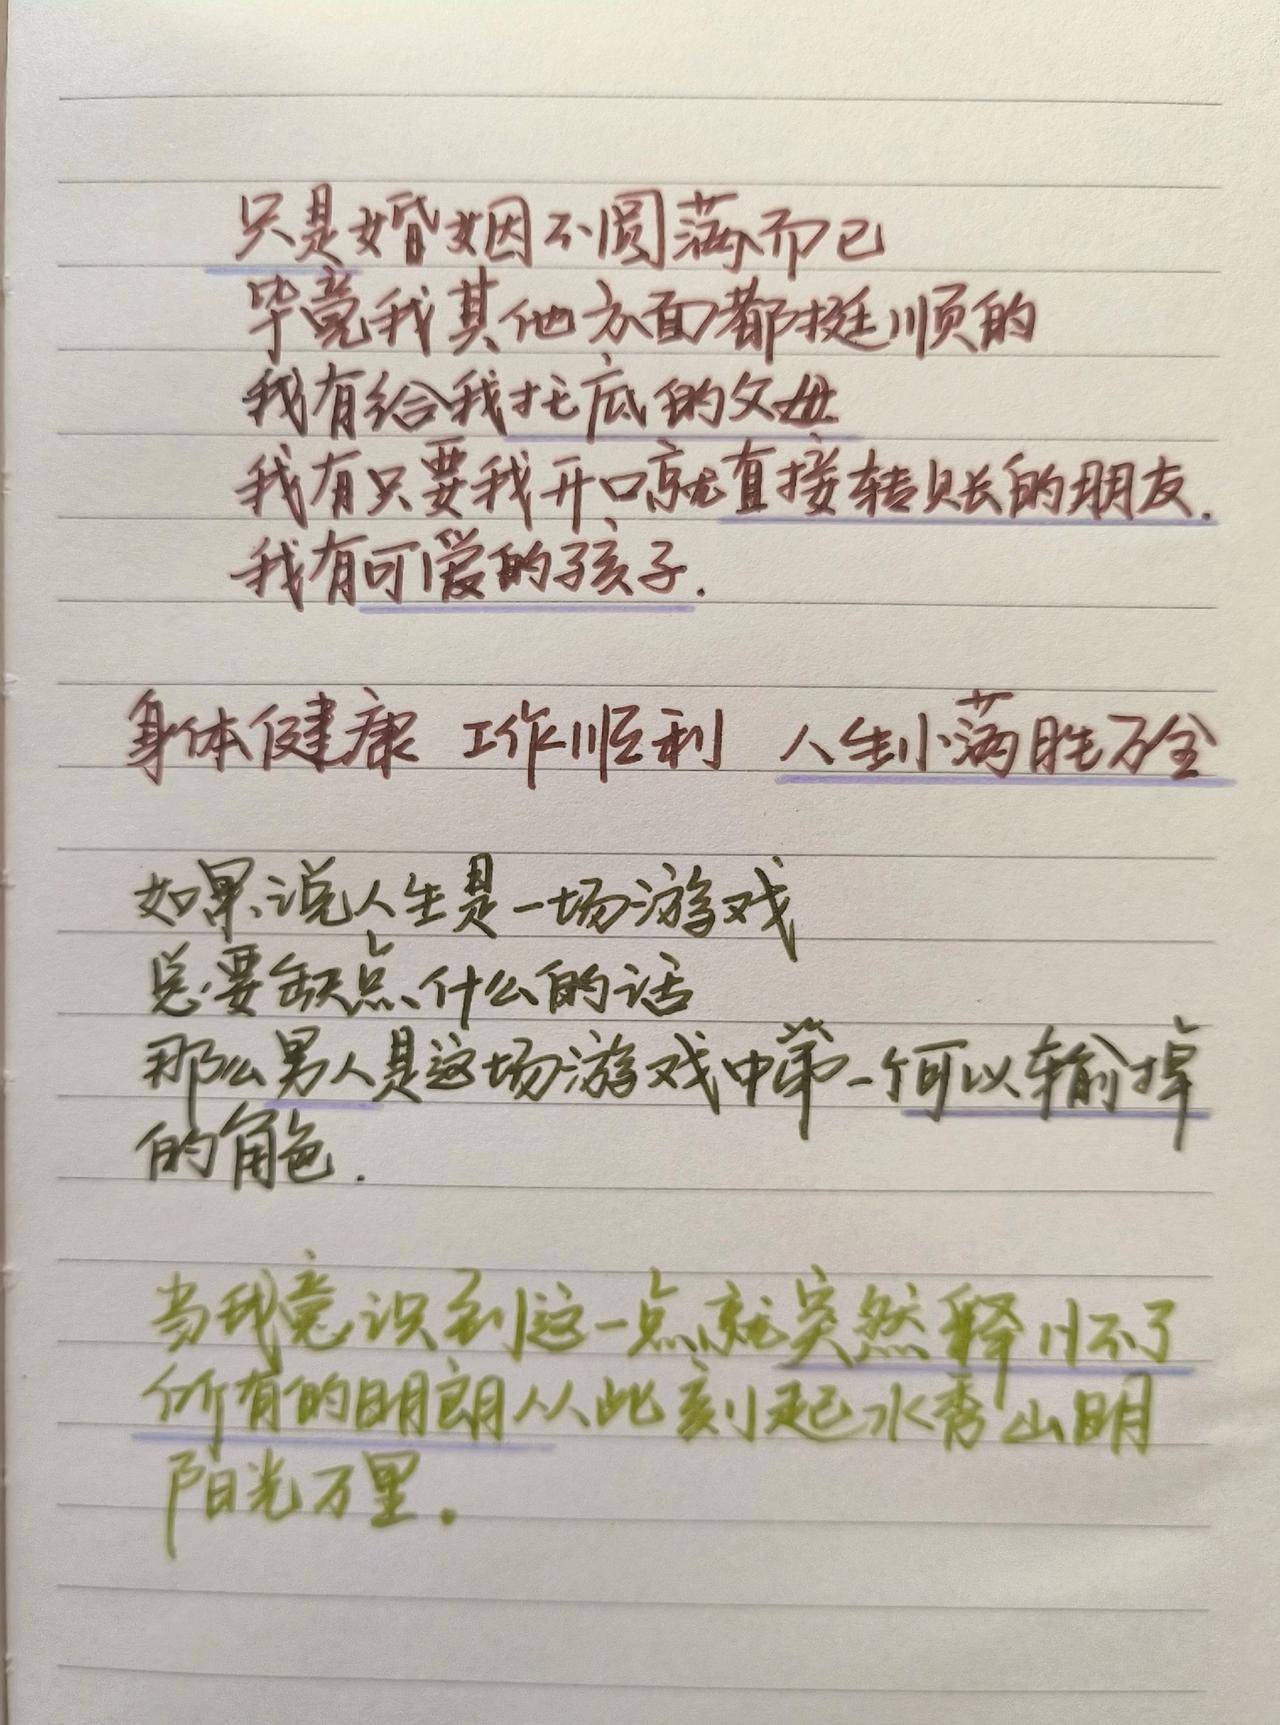 只是婚姻不圆满而已
毕竟我其他方面都挺顺的
我有给我托底的父母
我有只要我开口就直接转账的朋友.
我有可爱的孩子.
身体健康 工作顺利 人生小满胜万全
如果说人生是一场游戏
总要缺点什么的话
那么男人是这场游戏中第一个可以输掉
的角色.
当我意识到这一点就突然释怀了
所有的明朗从此刻起水秀山明
阳光万里.